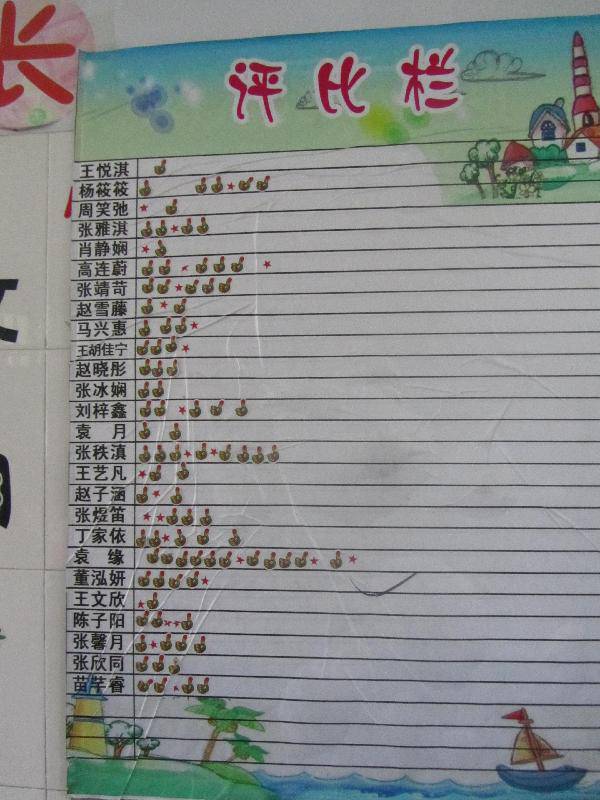 长
评比栏
王悦淇
杨筱筱
周笑弛
张雅淇
肖静娴
高连蔚
张靖苛
赵雪藤
马兴惠
王胡佳宁
赵晓彤
张冰娴
刘梓鑫
袁 月
张秩滇
王艺凡
赵子涵
张煜笛
丁家依
袁 缘
董泓妍
王文欣
陈子阳
张馨月
张欣同
苗芊睿